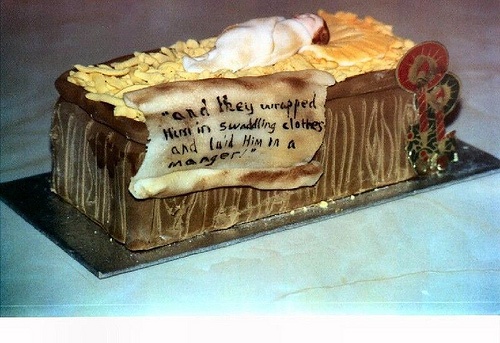 "and they wrapped
Him in swaddling clothes
and laid Him in a
manger!"